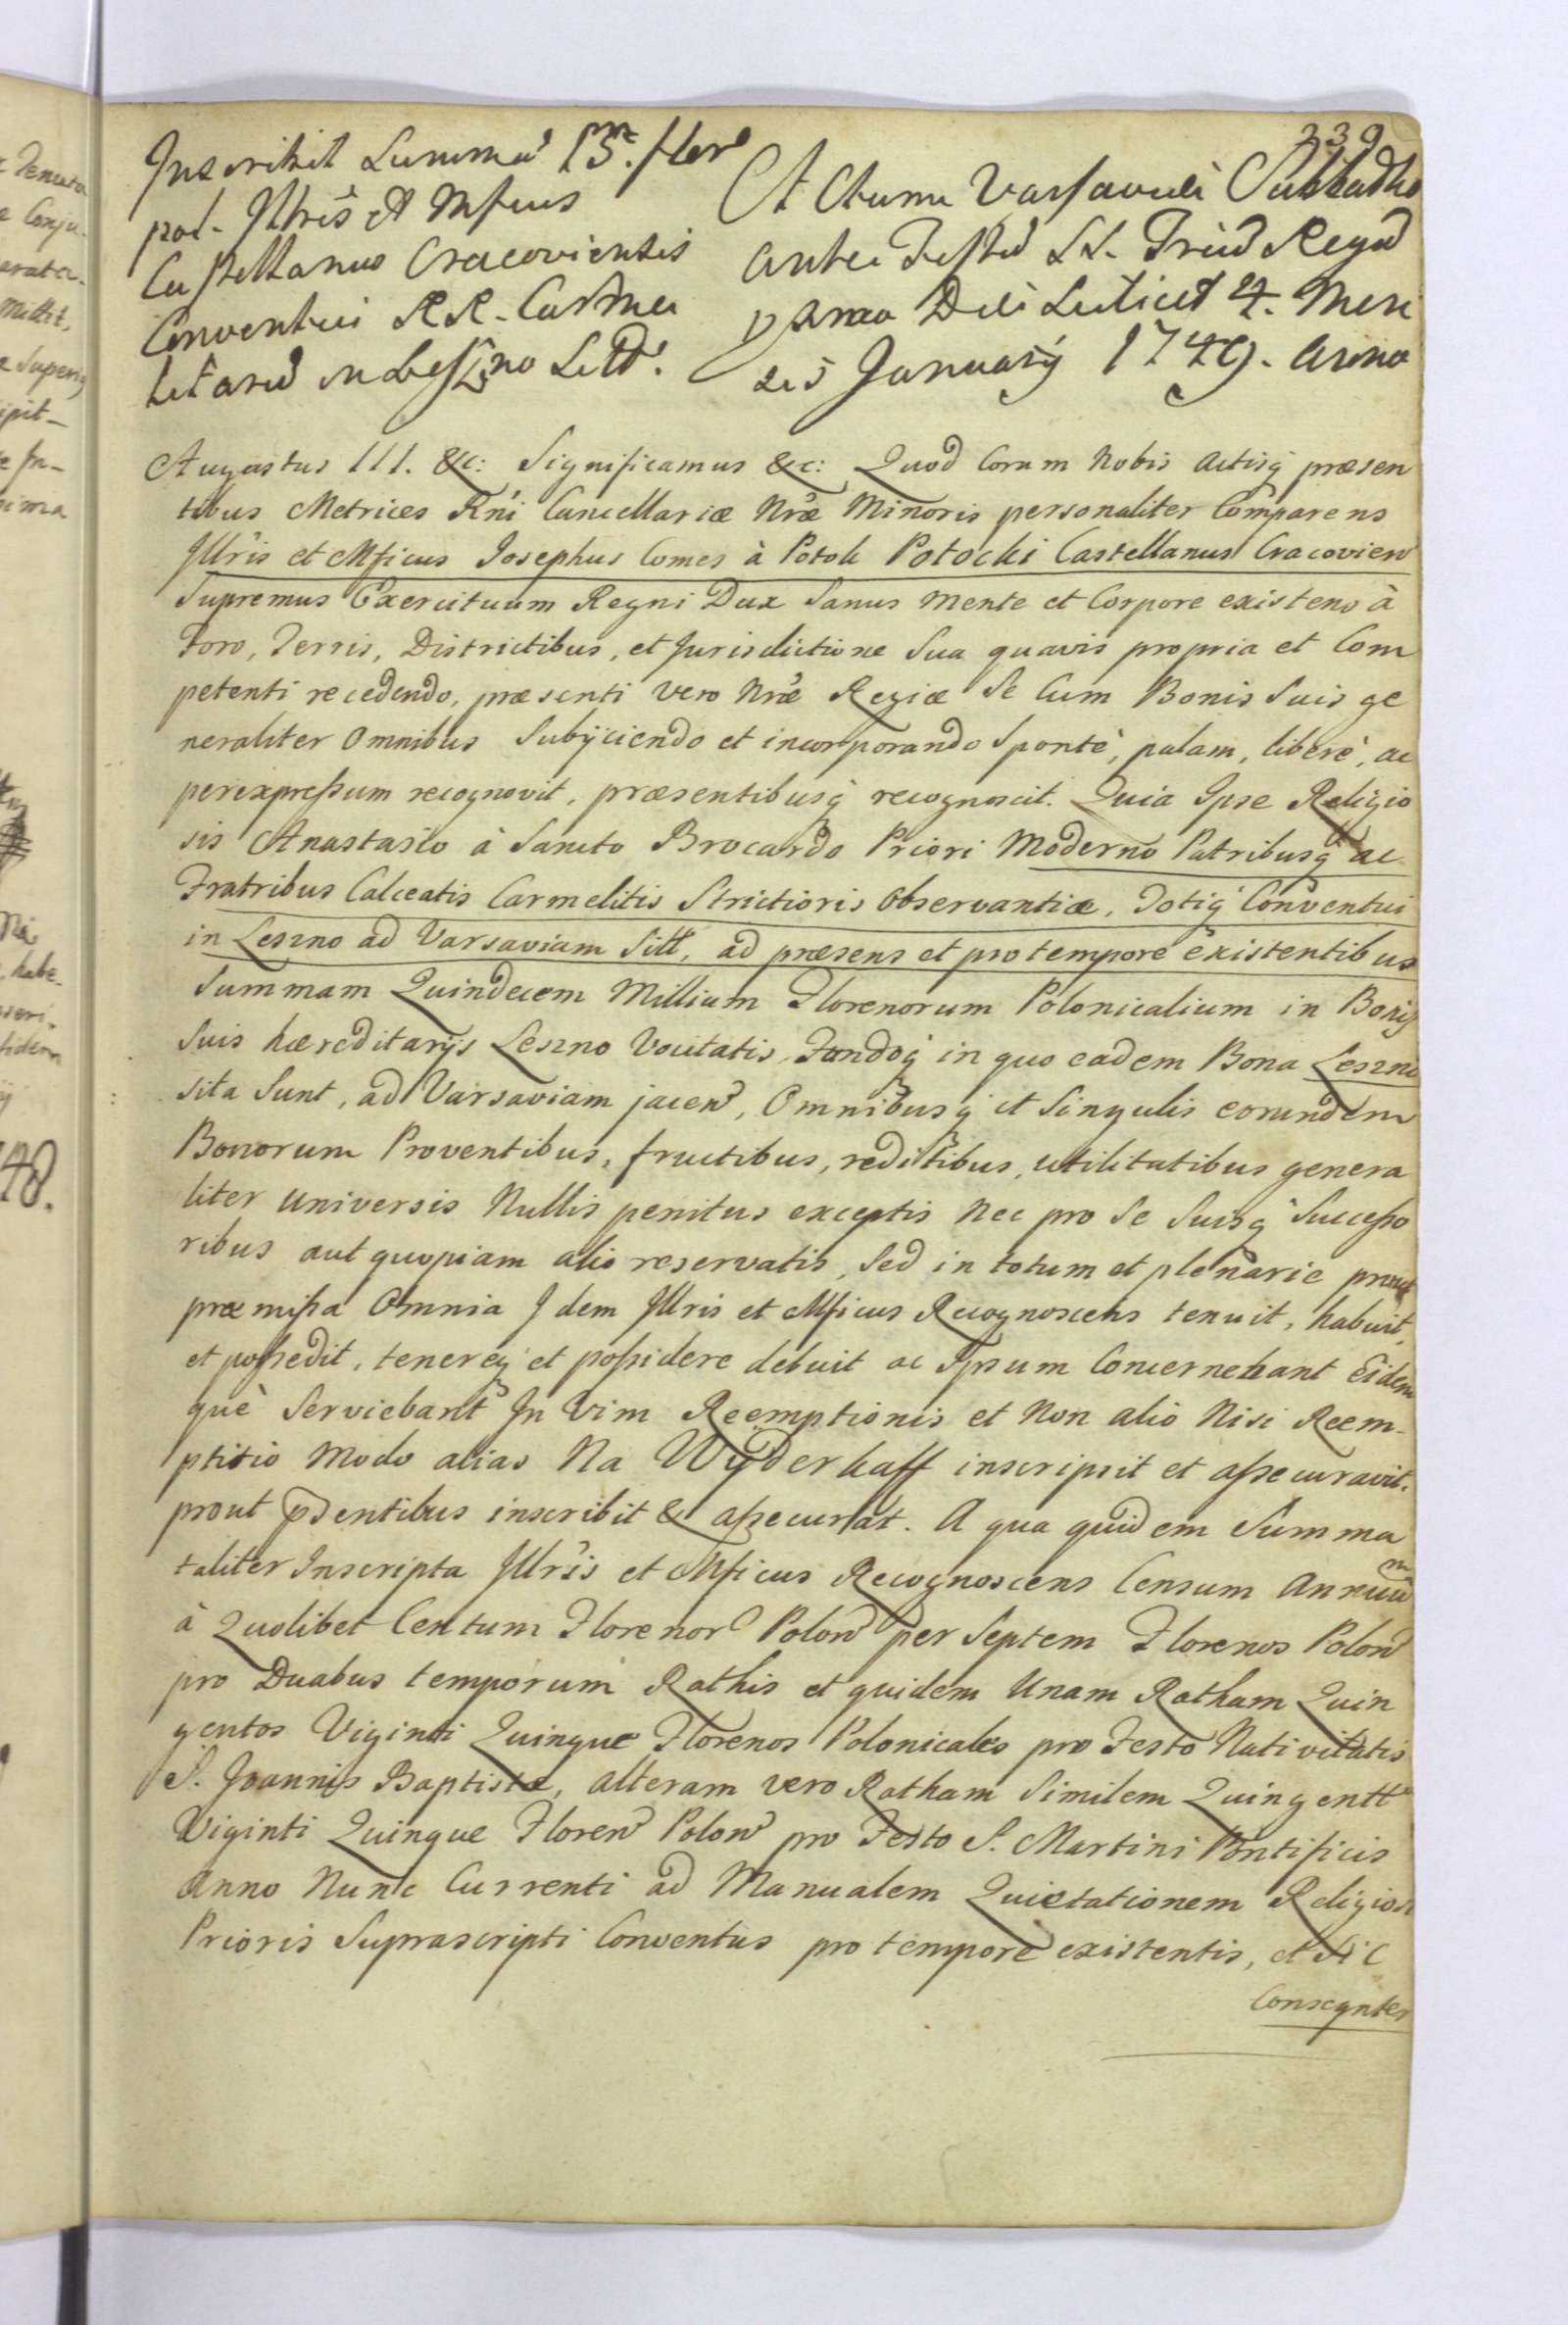 339
Inscribit Summã 15.m flor
pol. Illris et Mficus
Castellanus Cracoviensis
Conventui RR. Carme
litarũ in Leszno Sitt.
Actum Varsaviæ Sabbatho
ante Festũ SS. Triũ Regũ
prima Die Scilicet 4. Men
sis Januarÿ 1749. Anno
Augustus III. &c: Significamus &c: Quod Coram Nobis Actisq́ præsen
tibus Metrices Rńi Cancellariæ Nræ Minoris personaliter Comparens
Illris et Mficus Josephus Comes à Potok Potocki Castellanus Cracovien
Supremus Exercituum Regni Dux Sanus Mente et Corpore existens à
Foro, Terris, Districtibus, et Jurisdictione Sua quavis propria et Com
petenti recedendo, præsenti vero Nræ Regiæ Se Cum Bonis Suis ge
neraliter Omnibus Subÿciendo et incorporando Spontè, palam, liberè, ac
perexpressum recognovit, præsentibusq́ recognoscit. Quia Ipse Religio
sis Anastasio à Sancto Brocardo Priori Moderno Patribusq́ ac
Fratribus Calceatis Carmelitis Strictioris Observantiæ, Totiq́ Conventui
in Leszno ad Varsaviam Sitt, ad præsens et pro tempore existentibus
Summam Quindecem Millium Florenorum Polonicalium in Bonis
Suis hæreditarÿs Leszno Vocitatis, Fundoq́ in quo eadem Bona Leszno
sita Sunt, ad Varsaviam jacen, Omnibusq́ et Singulis eorundem
Bonorum Proventibus, fructibus, reditibus, utilitatibus genera
liter universis Nullis penitus exceptis Nec pro Se Suisq́ Successo
ribus aut quopiam alio reservatis, Sed in totum et plenarie prout
præmissa Omnia Idem Illris et Mficus Recognoscens tenuit, habuit,
et possedit, tenereq́ et possidere debuit ac Ipsum Concernebant Eidem
què Serviebant In Vim Reemptionis et Non alio Nisi Reem-
ptitio Modo alias Na Wÿderkaff inscripsit et assecuravit.
prout psentibus inscribit & assecurat. A qua quidem Summa
taliter Inscripta Illris et Mficus Recognoscens Censum Annuũm
à Quolibet Centum Florenor Polon per Septem Florenos Polon
pro Duabus temporum Rathis et quidem Unam Ratham Quin
gentos Viginti Quinque Florenos Polonicales pro Festo Nativitatis
S. Joannis Baptistæ, alteram vero Ratham Similem Quingentt
Viginti Quinque Floren Polon pro Festo S. Martini Pontificis
Anno Nunc Currenti ad Manualem Quietationem Religiosi
Prioris Suprascripti Conventus pro tempore existentis, et Sic
Conseqnter